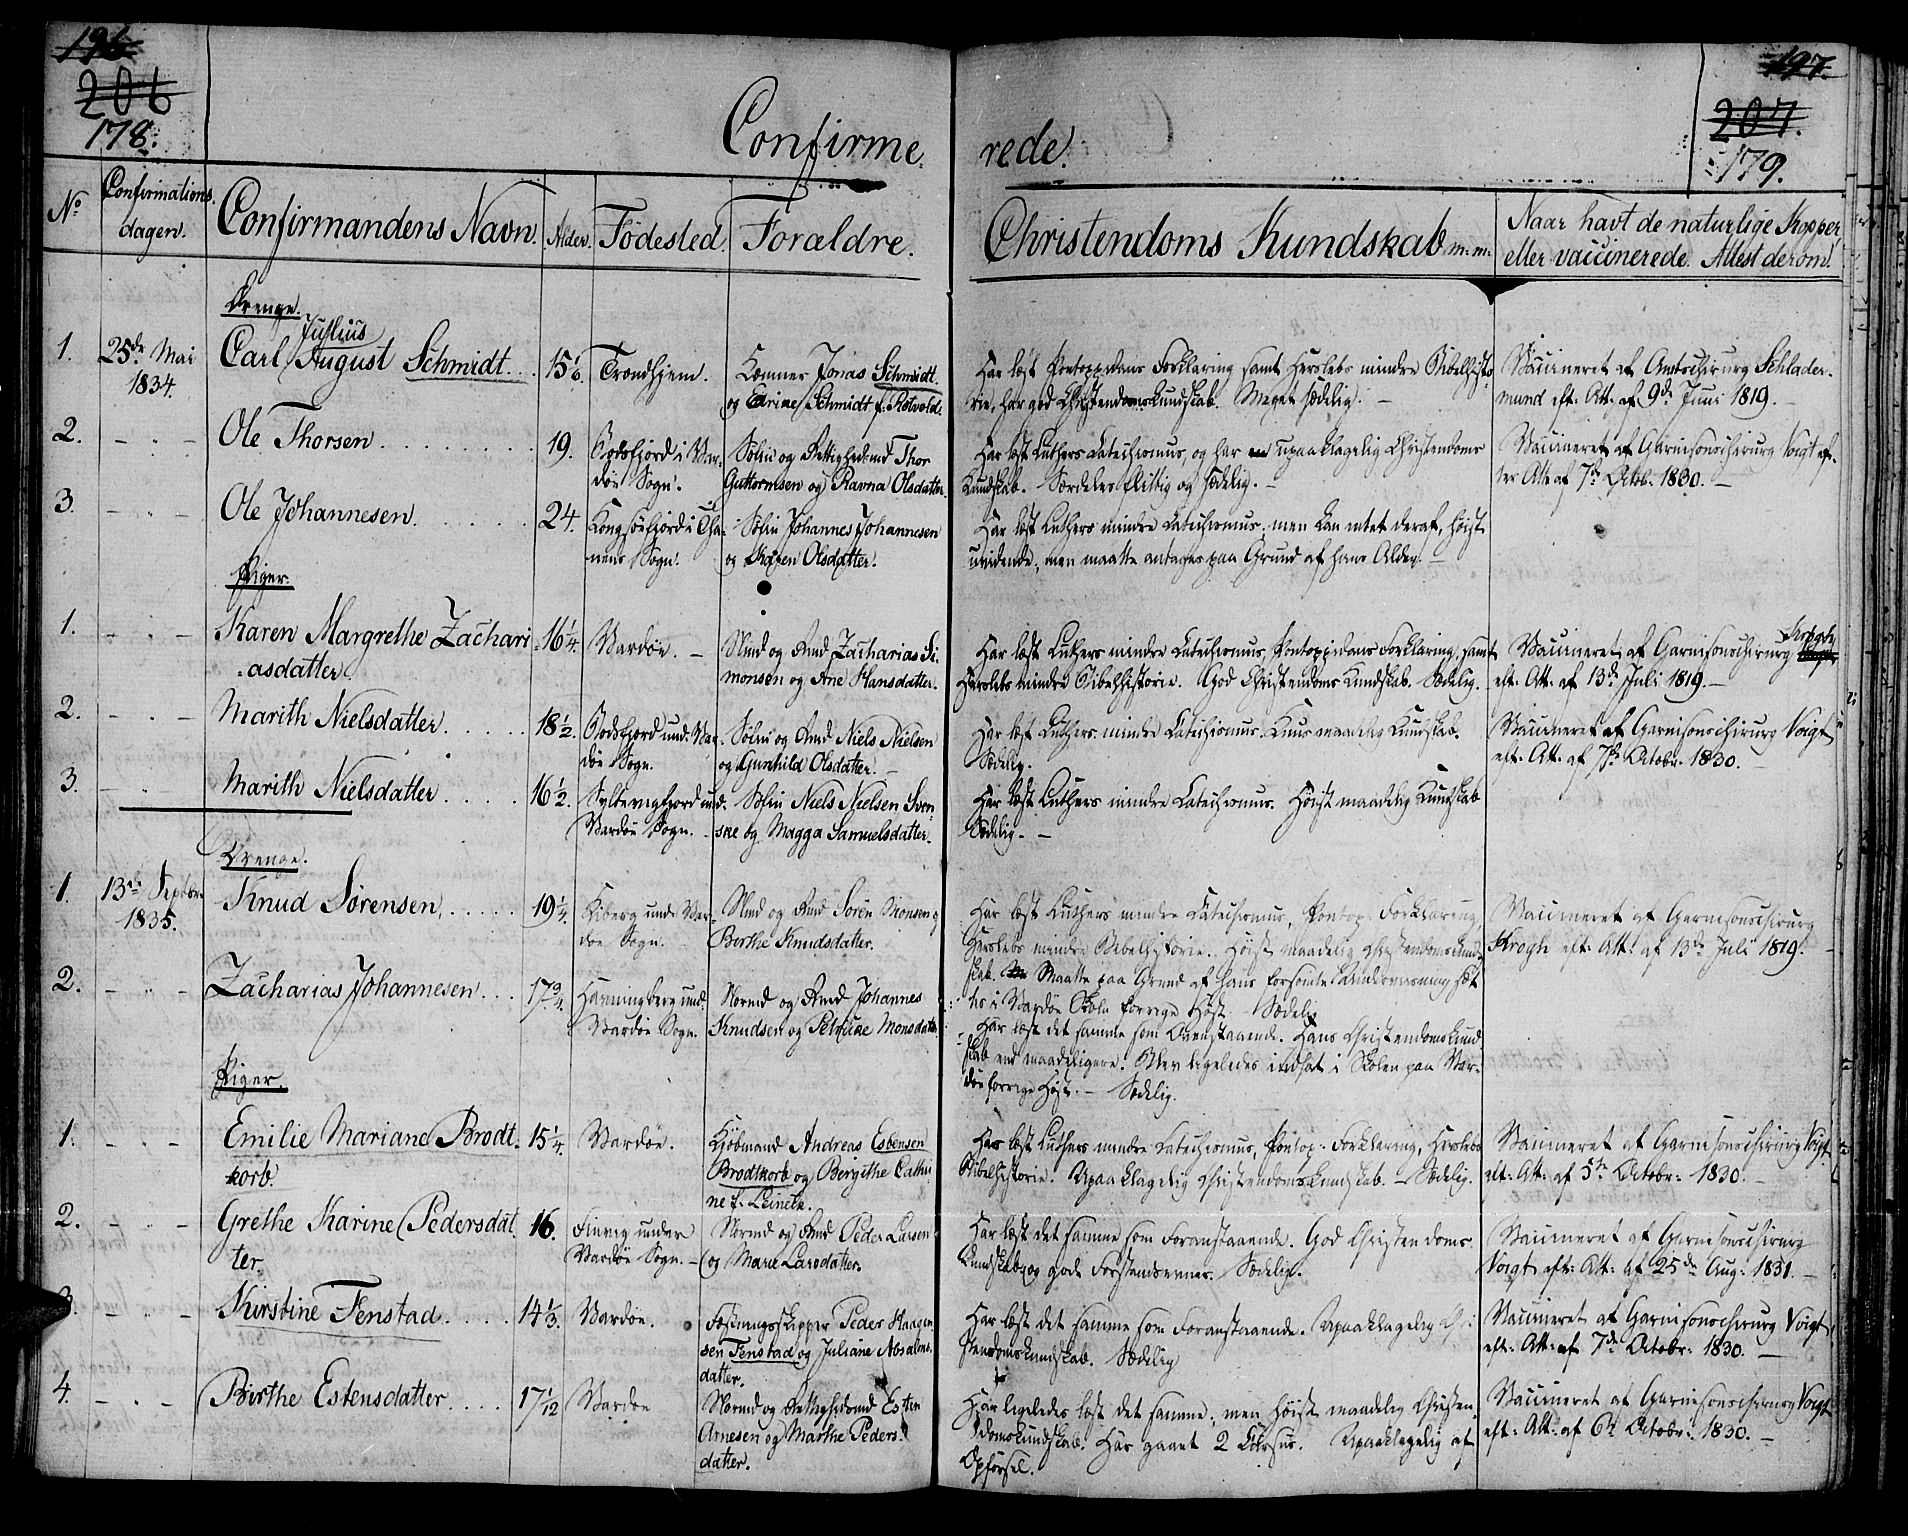 196
206
178.
Confirme
rede.
197.
207.
179.
No
Confirmations
dagen.
Confirmandens Navn.
Alder.
Fødested.
Forældre.
Christendoms Kundskab m: m:
Naar havt de naturlige Kopper,
eller vaccinerede. Attest derom.
Drenge.
1. 25de Mai 1834.
Carl Julius August Schmidt.
15 1/6.
Trondhjem.
Kæmner Jonas Schmidt
og Edrine Schmidt f: Rotvold.
Har læst Pontoppidans Forklaring samt Herslebs mindre Bibelhisto-
rie, har god Christendomskundskab. Meget sædelig. –
Vaccineret af Amtschirurg Schlader-
mund eft: Att: af 9de Juni 1819. –
2. – „ –
Ole Thorsen
19.
Bodsfjord i Var-
døe Sogn.
Søfin og Rettighedsmd Thor
Guttormsen og Ravna Olsdatter.
Har læst Luthers Catechismus, og har upaaklagelig Christendoms
Kundskab. Særdeles flittig og sædelig. –
Vaccineret af Garnisonschirurg Voigt ef-
ter Att: af 7de Octob: 1830. –
3. – „ –
Ole Johannesen
24.
Kongsøefjord i Tha-
nens Sogn.
Søfin Johannes Johannesen
og Karen Olsdatter.
Har læst Luthers mindre Catechismus, men kan intet deraf, høist
uvidende, men maatte antages paa Grund af hans Alder. –
Piger.
1. – „ –
Karen Margrethe Zachari
asdatter
16 1/4.
Vardøe. –
Nmd og Rmd Zacharias Si-
monsen og Ane Hansdatter.
Har læst Luthers mindre Catechismus, Pontoppidans Forklaring, samt
Herslebs mindre Bibelhistorie. God Christendoms Kundskab. Sædelig.
Vaccineret af Garnisonschirurg Krogh
eft: Att: af 13de Juli 1819. –
2. – „ –
Marith Nielsdatter
18 1/2.
Bodsfjord und: Var-
døe Sogn.
Søfin og Rmd Niels Nielsen
og Gunhild Olsdatter. –
Har læst Luthers mindre Catechismus. Kuns maadelig Kundskab.
Sædelig.
Vaccineret af Garnisonschirurg Voigt
eft: Att: af 7de Octobr: 1830. –
3. – „ –
Marith Nielsdatter
16 1/2.
Syltevigfjord und:
Vardøe Sogn.
Søfin Niels Nielsen Sven-
ske og Magga Samuelsdatter.
Har læst Luthers mindre Catechismus. Høist maadelig Kundskab
Sædelig. –
Drenge.
1. 13de Septbr: 1835.
Knud Sørensen,
19 1/4.
Kiberg unde Var-
døe Sogn.
Nmd og Rmd Søren Monsen og
Berthe Knudsdatter.
Har læst Luthers mindre Catechismus, Pontop: Forklaring,
Herslebs mindre Bibelhistorie. Høist maadelig Christendomskund-
skab. Maatte paa Grund af hans forsømte Underviisning søt
tes i Vardøe Skole forrige Høst. – Sædelig
Vaccineret af Garnisonschirurg
Krogh eft: Att: af 13de Juli 1819. –
2. – „ –
Zacharias Johannesen.
17 3/4.
Havningberg und:
Vardøe Sogn.
Normd og Rmd Johannes
Knudsen og Petrikke Monsdatter
Har læst det samme som Ovenstaaende. Hans Christendomskund-
skab end maadeligere. Blev ligeledes indsat i Skolen paa Var-
døe forrige Høst. – Sædelig.
Piger.
1. – „ –
Emilie Mariane Brodt-
korb.
15 1/4.
Vardøe.
Kjøbmand Andreas Esbensen
Brodtkorb og Bergithe Cathri
ne f: Leineck.
Har læst Luthers mindre Catechismus, Pontop: Forklaring, Herslebs
Bibelhistorie. Upaaklagelig Christendomskundskab. – Sædelig.
Vaccineret af Garnisonschirurg Voigt
eft: Att: af 5te Octobr: 1830. –
2. – „ –
Grethe Karine Pedersdat
ter.
16.
Finvig under
Vardøe Sogn. –
Normd og Rmd Peder Larsen
og Marie Larsdatter.
Har læst det samme som Foranstaaende. God Christendoms
Kundskab og gode Forstandsevner. Sædelig.
Vaccineret af Garnisonschirurg
Voigt eft: Att: af 25de Aug: 1831. –
3. – „ –
Kirstine Fenstad
14 1/3.
Vardøe.
Fæstningsskipper Peder Haagen
sen Fenstad og Juliane Absalons-
datter.
Har læst det samme som Foranstaaende. Upaaklagelig Chri
stendomskundskab. Sædelig
Vaccineret af Garnisonschirurg Voigt
eft: Att: af 7de Octobr: 1830. –
4. – „ –
Birthe Estensdatter
17 1/12
Vardøe
Normd og Rettighedsmd Esten
Arnesen og Marthe Peders-
datter.
Har ligeledes læst det samme, men høist maadelig Christen-
domskundskab. Har gaaet 2 Cursus. Upaaklagelig af
Opførsel.
Vaccineret af Garnisonschirurg Voigt
eft: Att: af 6te Octobr: 1830. –